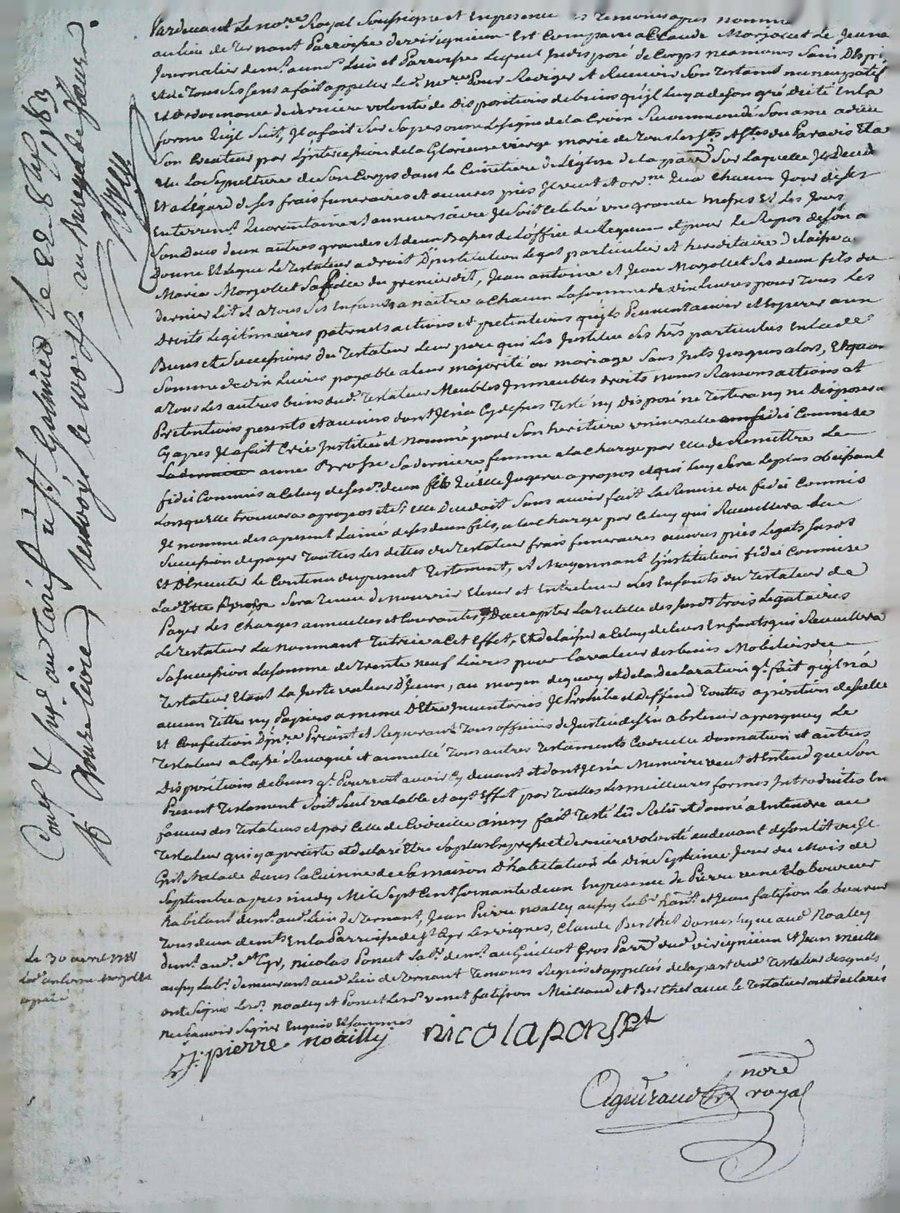 Pardevant Le no.re Royal Soussigné et En presence des temoins apres nommé
au lieu de Ternant Parroisse de virignieu Est Comparu Claude Morjollet Le Jeune
Journalier dem.t aum. Lieu et Parroisse Lequel Indisposé de Corps neamoins Sain D'Esprit
Et de Tous Ses Sens a fait appeller Le d. no.re Pour Rediger Et Recevoir Son Testament nuncupatif
et ordonnance de derniere volonté de Dispositions de biens qu'il Luy a de Son gré dicté En la
forme qu'il Suit, Il a fait Sur Sa personne Le Signe de la Croix Recommendé Son ame a dieu
Son Createur par L'intercession de la Glorieuse vierge marie de Tous Les S.ts Et S.tes du Paradis Et a
Elu La Sepulture de Son Corps dans le Cimetiere de L'Eglise de la parr.e Sur Laquelle Il Decede
Et a L'Egard de Ses frais funeraires et œuvres pies Il veut et ord.ne Qu'a Chacun Jour de Ses
Enterrem.t Quarantaine et anniversaire Il Soit Celebré une grande messe Et Les Jours
Son Deux deux autres grandes et deux basses de L'office de Requiem Et pour Le Repos de Son a
Donne Et Legue Le Testateur a droit D'institution Legat particulier et hereditaire Delaisse a
Marie Morjollet Sa fille du premier Lit, Jean antoine et Jean Morjollet Ses deux fils du
dernier Lit Et a Tous Ses Enfants a naitre a Chacun La Somme de vin Livres pour Tous Les
Droits Legitimaires paternels actions Et pretentions qu'ils Peuvent avoir et Esperer aux
Biens et Successions du Testateur Leur pere qui Les Institue Ses hrs particuliers En la d.e
Somme de vin Livres payable a Leur majorité ou mariage Sans Interets Jusques alors, Et quant
a Tous Les autres biens dud. Testateur Meubles Immeubles droits noms Raisons actions et
Pretentions presents et avenir dont Il n'a Cy dessus Testé ny Disposé ne Testera ny ne Disposera
Cy apres Il a fait Créé Institué et nommé pour Son heritiere universelle fidei Commise
anne Brosse Sa derniere femme a la Charge par Elle de Remettre Le
fidei Commis a Celuy de Ses d. deux fils qu'Elle Jugera a propos et qui Luy Sera Le plus obeissant
Lorsqu'elle trouvera a propos et Si Elle Decedoit Sans avoir fait La Remise du fidei Commis
Il nomme des a present L'ainé de Ses deux fils, a la Charge par Celuy qui Recueillera La
Succession de payer Toutes Les dettes du Testateur frais funeraires œuvres pies Legats Susd.ts
Et D'Executer Le Contenu du present Testament, Et Moyennant L'institution fidei Commise
La d.tte Brosse Sera tenue de nourrir Elever et Entretenir Les Enfants du Testateur de
Payer Les Charges annuelles et Courantes, D'accepter La tutelle des Susd.ts trois Legataires
Le Testateur La nommant Tutrice a Cet Effet, Et delaisse a Celuy de Leurs Enfants qui Recueillera
Sa Succession La Somme de Trante neuf Livres pour La valeur des biens Mobiliers du
Testateur Etant La Juste valeur D'Iceux, au moyen de quoy et de la declaration q.l fait qu'il n'a
aucun Titre ny Papiers a meme D'Etre Inventoriés Il Prohibe et Deffend Toutes apposition de Scellé
et Confection D'inv.re Priant et Requerant Tous officiers de Justice de S'en abstenir a presque quoy Le
Testateur a Cassé Revoqué et annullé Tous autres Testaments Codicille Donnation et autres
Dispositions de biens q.l Pourroit avoir Cy devant et dont Il n'a Memoire veut et Entend que Son
Present Testament Soit Seul valable et ayt Effet par Toutes Les meilleures formes Introduites En
faveur des Testateurs et par Celle de Codicille ainsy fait Testé Lu Relu et donné a Entendre au
Testateur qui y a persisté et declaré Etre Sa plus Expresse et derniere volonté au devant de Son Lit ou Il
Git Malade Dans La Cuisine de Sa maison D'habitation Le Dix Septieme Jour du Mois de
Septembre apres midy Mil Sept Cent Soixante deux En presence de Pierre venet Laboureur
habitant dem.t aud. Lieu de Ternant, Jean Pierre Noailly aussy Lab.r et Jean fatisson Laboureur
Tous deux dem.ts En la Parroisse de S.t Cyr Les vignes, Claude Berthet Domestique aud. Noailly
dem.t aud. S.t Cyr, Nicolas Poncet Lab.r dem.t au Guillot Gros Parr.e dud. virignieux et Jean Meillaud
aussy Lab.r demeurant aud. Lieu de Ternant Temoins Requis et appellés de la part du d. Testateur desquels
ont Signé Les d. noailly et Poncet Les d. venet fatisson Meillaud et Berthet avec Le Testateur ont declarés
ne Scavoir Signer Enquis Et Sommés
J. pierre noailly nicola ponset
Aguiraud
nore
royal
Le 30 avril 1781